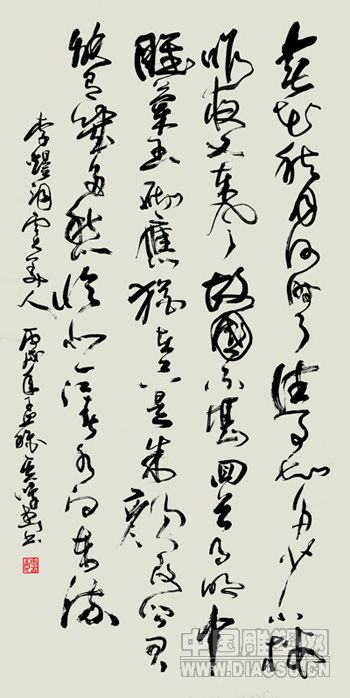 春花秋月何時了往事知多少小樓
昨夜又東風故國不堪回首月明中
雕闌玉砌應猶在只是朱顏改問君
能有幾多愁恰似一江春水向東流
李煜詞虞美人 丙戌年孟秋 書
中国雕塑网
WWW.DIAOSU.CN